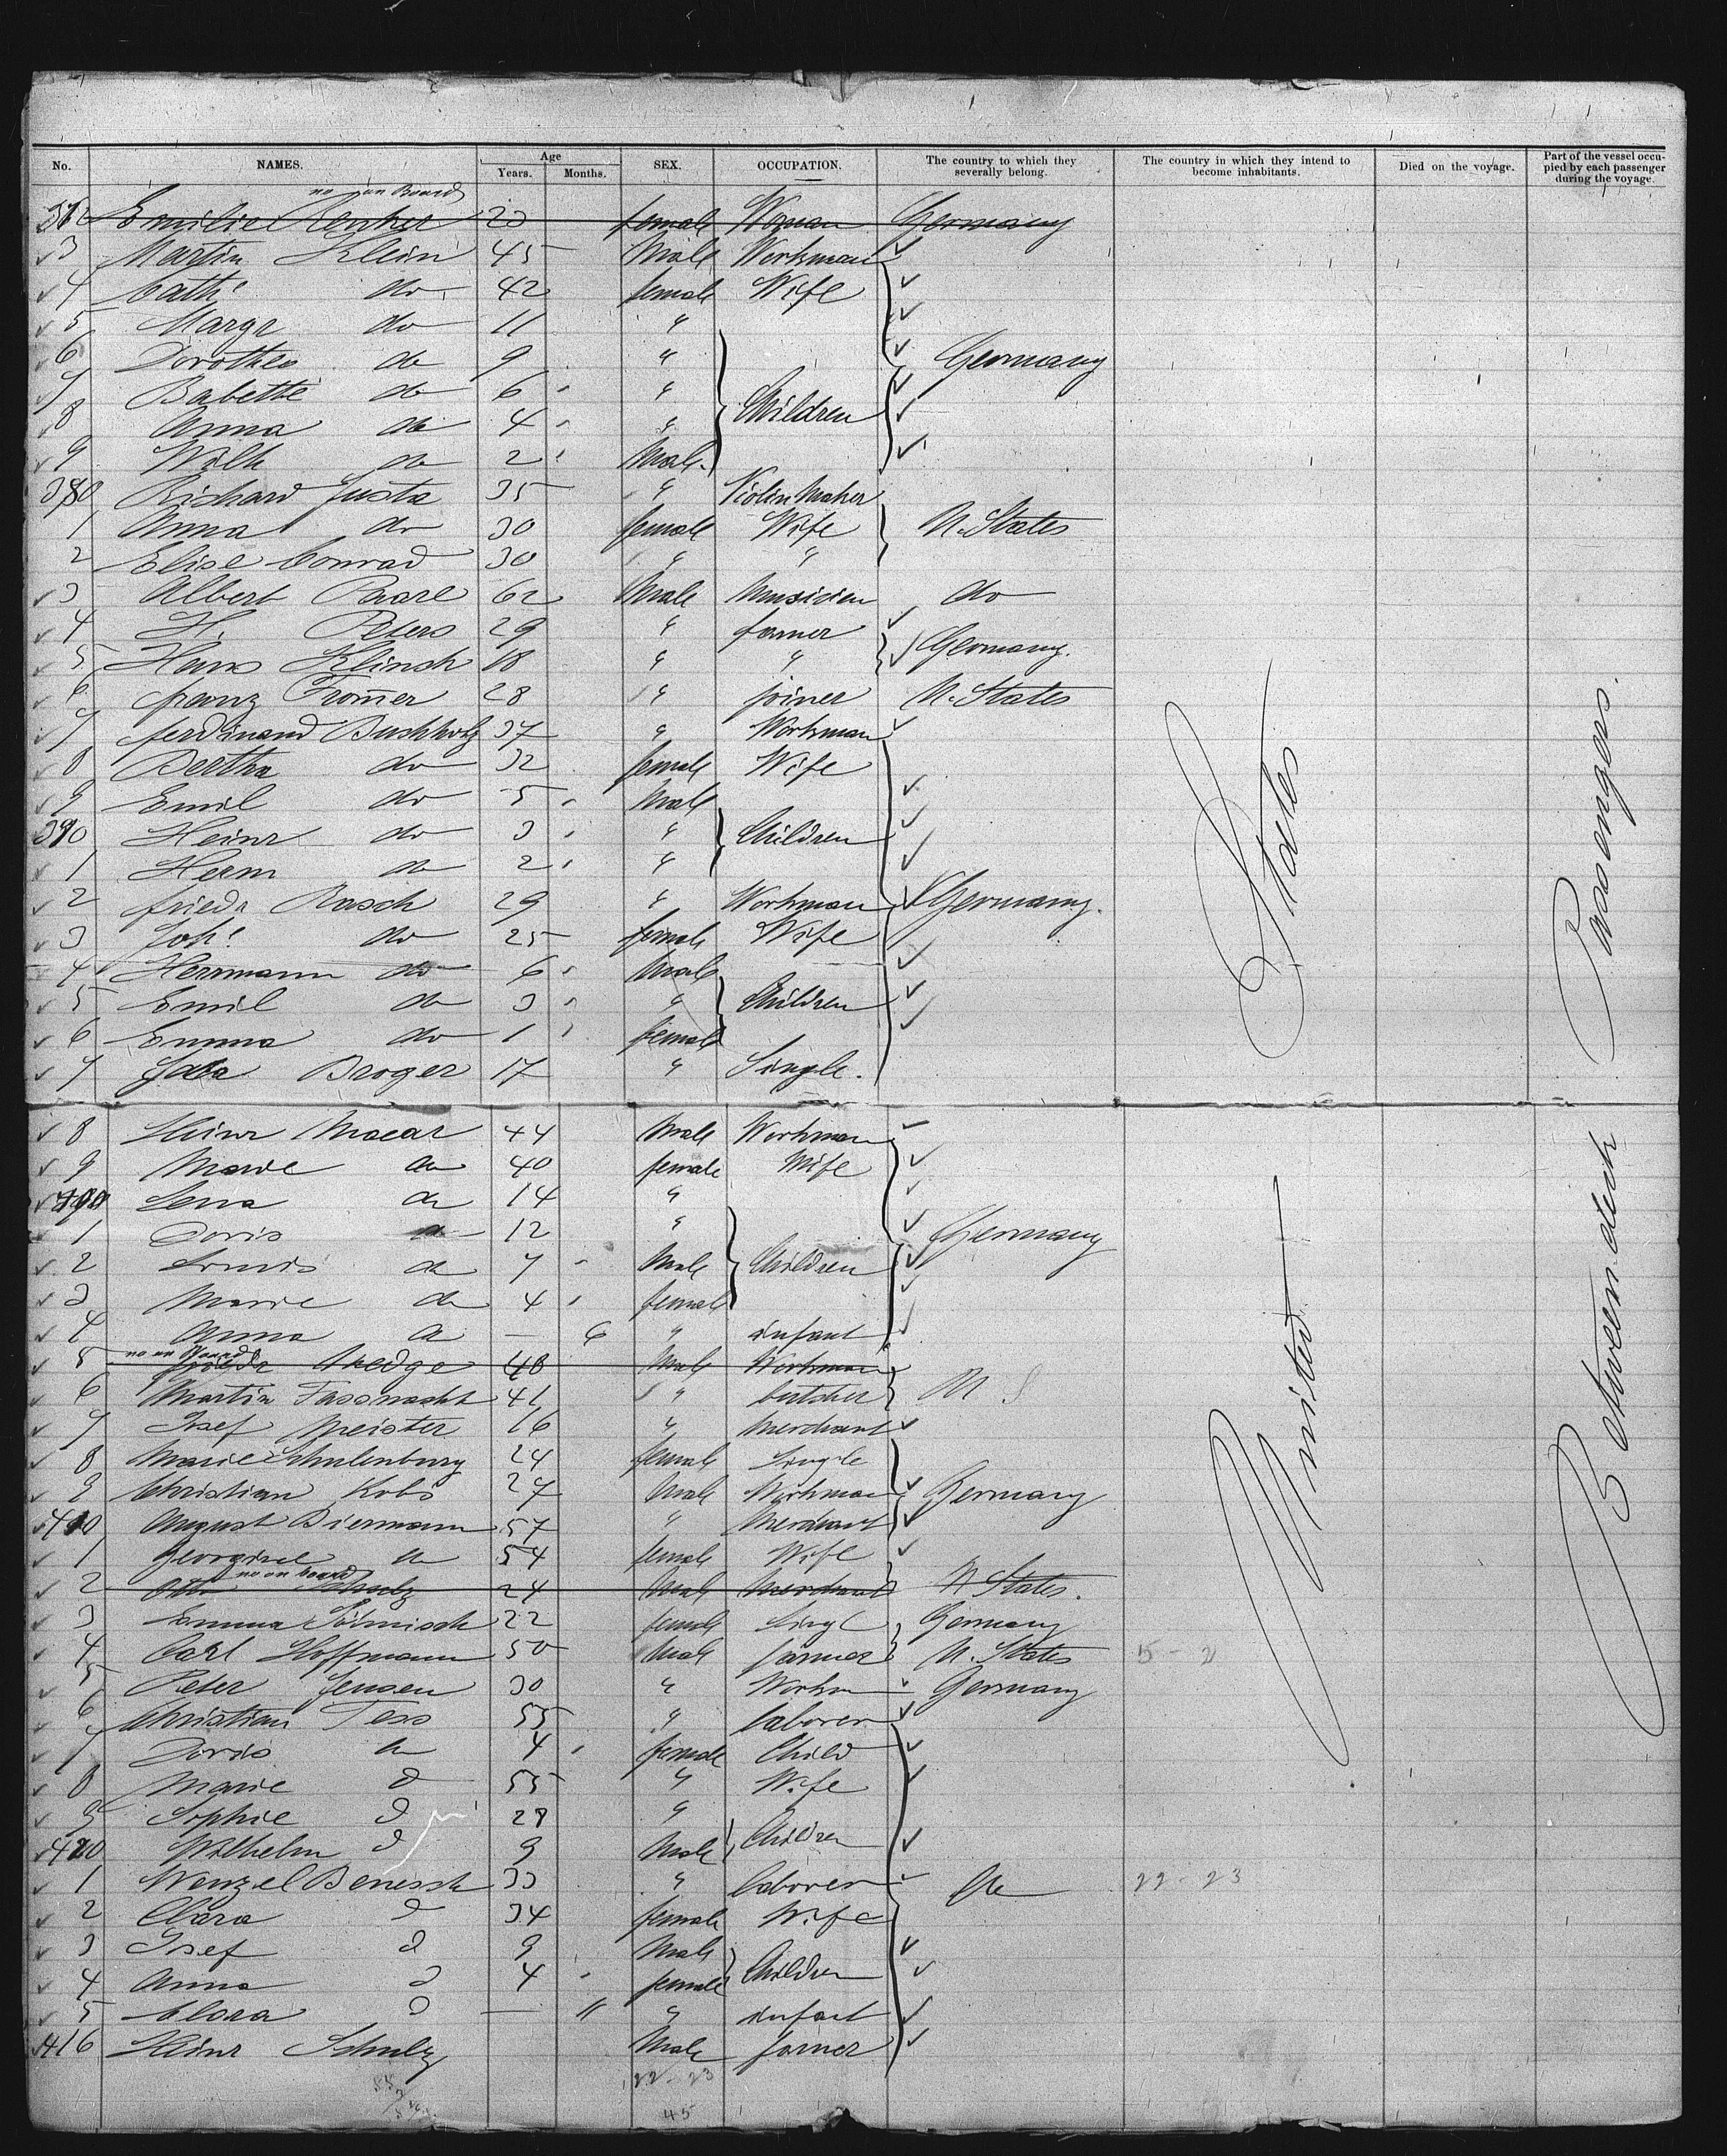 No. NAMES. Age Years. Months. SEX. OCCUPATION. The country to which they severally belong. The country in which they intend to become inhabitants. Died on the voyage. Part of the vessel occupied by each passenger during the voyage.
no on Board
372 Emilie 20 female Woman Germany
3 Martin Klein 45 Male Workman
4 Cath: do 42 female Wife
5 Margr do 11 "
6 Dorothea do 9 " Germany
7 Babette do 6 "
8 Anna do 4 " Children
9 Wilh do 2 Male
380 Richard Justa 35 " Violin Maker
1 Anna do 30 female Wife U. States
2 Elise Conrad 30 " "
3 Albert Paare 62 Male Musician do
4 H. Peters 29 " farmer
5 Hans Klinsch 18 " " Germany.
6 franz Trom̄er 28 " joiner U. States
7 ferdinand Buchholz 37 " Workman
8 Bertha do 32 female Wife
9 Emil do 5 Male
390 Heinr do 3 " Children
1 Herm do 2 "
2 friedr Rasch 29 " Workman Germany.
3 Joh: do 25 female Wife
4 Herrmann do 6 Male
5 Emil do 3 " Children
6 Emma do 1 female
7 Ida Broger 17 " Single.
8 Heinr Macar 44 Male Workman
9 Marie do 40 female Wife
400 Lena do 14 "
1 Doris do 12 " Germany
2 Louis do 7 Male Children
3 Marie do 4 female
4 Anna do — 6 " infant
no on Board
5 friedr 48 Male Workman
6 Martin Fassnacht 41 " butcher U S
7 Josef Meister 16 " Merchant
8 Marie Schulenburg 24 female Single
9 Christian Kobs 27 Male Workman Germany
410 August Biermann 57 " Merchant
1 Georgine do 54 female Wife
no on board
2 Otto Schulz 24 Male Merchant U States.
3 Emma 22 female Singl Germany
4 Carl Hoffmann 50 Male farmer U. States
5 Peter Jensen 30 " Workm Germany
6 Christian Tess 55 " laborer
7 Doris do 4 female Child
8 Marie d 55 " Wife
9 Sophie d 28 "
420 Wilhelm d 9 Male Children
1 Wenzel Benesch 33 " laborer do 22-23
2 Clara d 34 female Wife
3 Josef d 9 Male
4 Anna d 4 female Children
5 Clara d — 11 " infant
416 Heinr Schulz Male farmer
22-23
45
United States
Between deck Passengers.